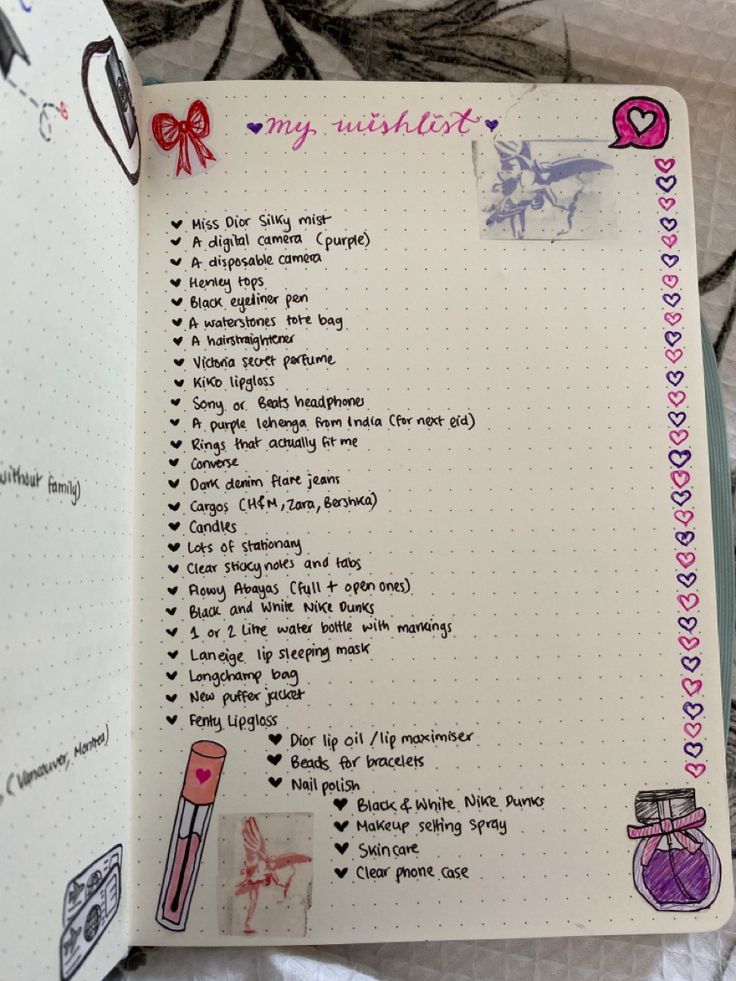 my wishlist
Miss Dior Silky mist
A digital camera (purple)
A disposable camera
Henley tops
Black eyeliner pen
A waterstones tote bag
A hairstraightener
Victoria secret perfume
Kiko lipgloss
Sony or Beats headphones
A purple lehenga from India (for next eid)
Rings that actually fit me
Converse
Dark denim flare jeans
Cargos (H&M, Zara, Bershka)
Candles
Lots of stationary
Clear stickynotes and tabs
Flowy Abayas (full + open ones)
Black and White Nike Dunks
1 or 2 Litre water bottle with markings
Laneige lip sleeping mask
Longchamp bag
New puffer jacket
Fenty Lipgloss
Dior lip oil /lip maximiser
Beads for bracelets
Nail polish
Black & White Nike Dunks
Makeup setting spray
Skincare
Clear phone case
without family)
(Vancouver, Montreal)